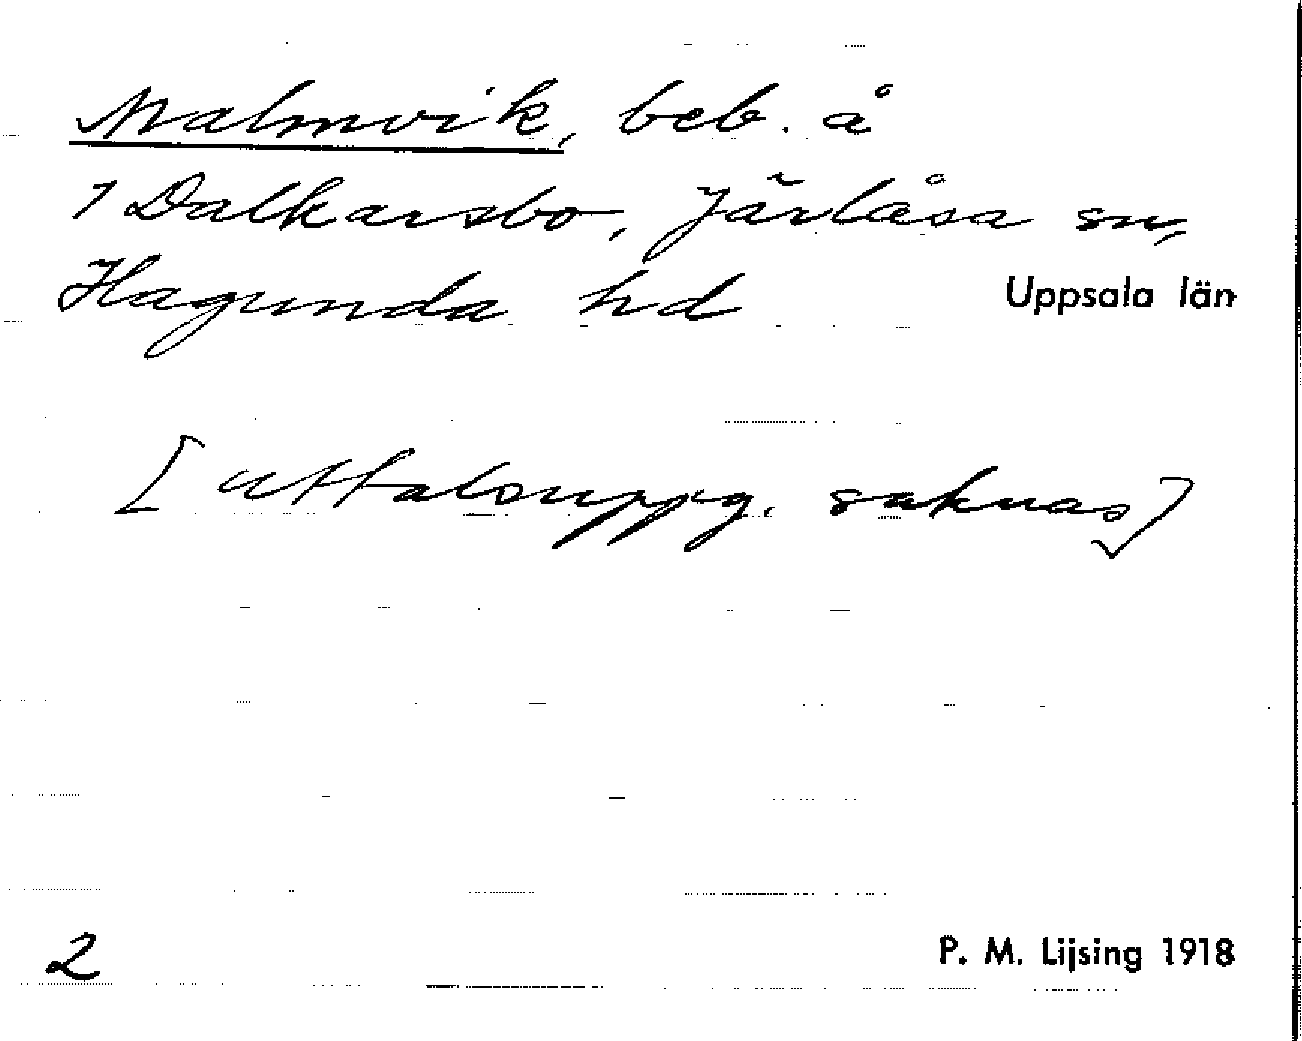 Malmvik, beb. å
1 Dalkarsbo, Järlåsa sn,
Hagunda hd
Uppsala län
[uttalsuppg. saknas]
2
P. M. Lijsing 1918